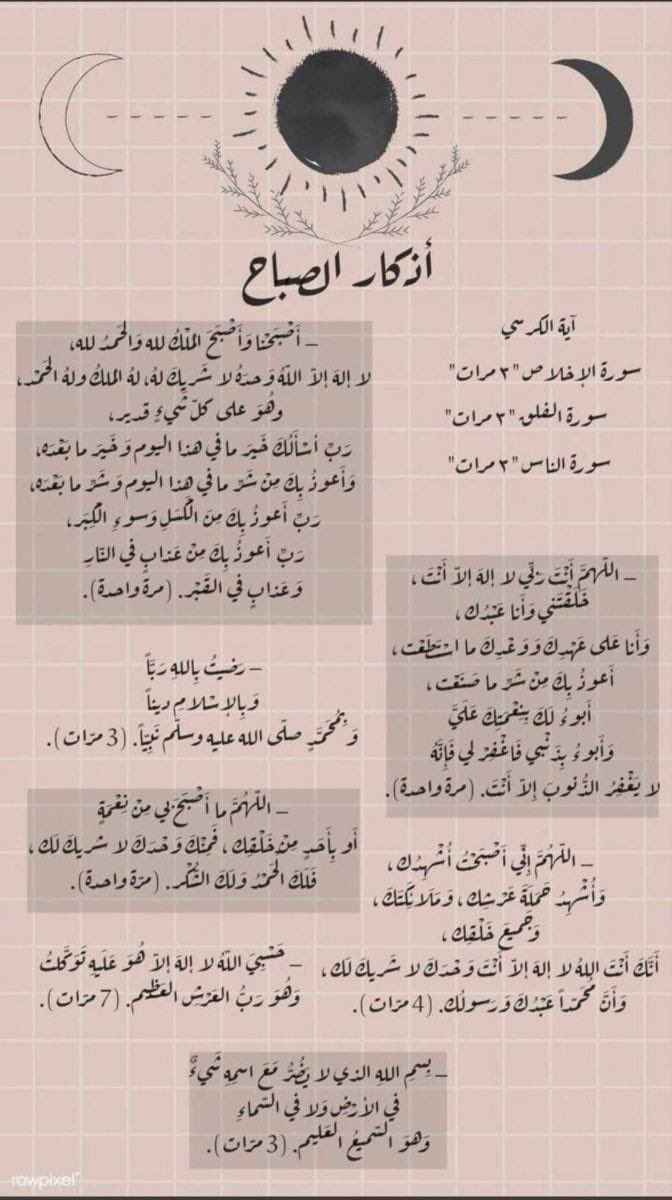 أذكار الصباح
آية الكرسي
سورة الإخلاص "٣ مرات"
سورة الفلق "٣ مرات"
سورة الناس "٣ مرات"
– أَصْبَحْنا وَأَصْبَحَ المُلْكُ لله وَالحَمدُ لله،
لا إلهَ إلاّ اللّهُ وَحدَهُ لا شَريكَ لهُ، لهُ المُلكُ ولهُ الحَمْد،
وهُوَ على كلّ شَيءٍ قدير،
رَبِّ أسْأَلُكَ خَيرَ ما في هذا اليوم وَخَيرَ ما بَعْدَه،
وَأَعوذُ بِكَ مِنْ شَرِّ ما في هذا اليوم وَشَرِّ ما بَعْدَه،
رَبِّ أَعوذُ بِكَ مِنَ الْكَسَلِ وَسوءِ الْكِبَر،
رَبِّ أَعوذُ بِكَ مِنْ عَذابٍ في النّارِ
وَعَذابٍ في القَبْر. (مرة واحدة).
– اللّهمَّ أَنْتَ رَبِّي لا إلهَ إلاّ أَنْتَ،
خَلَقْتَني وَأَنا عَبْدُك،
وَأَنا عَلى عَهْدِكَ وَوَعْدِكَ ما اسْتَطَعْت،
أَعوذُ بِكَ مِنْ شَرِّ ما صَنَعْت،
أَبوءُ لَكَ بِنِعْمَتِكَ عَلَيَّ
وَأَبوءُ بِذَنْبي فَاغْفِرْ لي فَإِنَّهُ
لا يَغْفِرُ الذُّنوبَ إِلاّ أَنْتَ. (مرة واحدة).
– رَضيتُ بِاللهِ رَبَّاً
وَبِالإسْلامِ ديناً
وَبِمُحَمَّدٍ صلّى الله عليه وسلّم نَبِيّاً. (3 مرّات).
– اللّهُمَّ ما أَصْبَحَ بي مِنْ نِعْمَةٍ
أَو بِأَحَدٍ مِنْ خَلْقِك، فَمِنْكَ وَحْدَكَ لا شريكَ لَك،
فَلَكَ الْحَمْدُ وَلَكَ الشُّكْر. (مرّة واحدة).
– اللّهُمَّ إِنِّي أَصْبَحْتُ أُشْهِدُك،
وَأُشْهِدُ حَمَلَةَ عَرْشِك، وَمَلائِكَتَكَ،
وَجَميعَ خَلْقِك،
أَنَّكَ أَنْتَ اللهُ لا إلهَ إلاّ أَنْتَ وَحْدَكَ لا شَريكَ لَك،
وَأَنَّ مُحَمّداً عَبْدُكَ وَرَسولُك. (4 مرّات).
– حَسْبِيَ اللّهُ لا إلهَ إلاّ هُوَ عَلَيهِ تَوَكَّلتُ
وَهُوَ رَبُّ العَرْشِ العَظيم. (7 مرّات).
– بِسمِ اللهِ الذي لا يَضُرُّ مَعَ اسمِهِ شَيءٌ
في الأرْضِ وَلا في السّماءِ
وَهوَ السّميعُ العَليم. (3 مرّات).
rawpixel